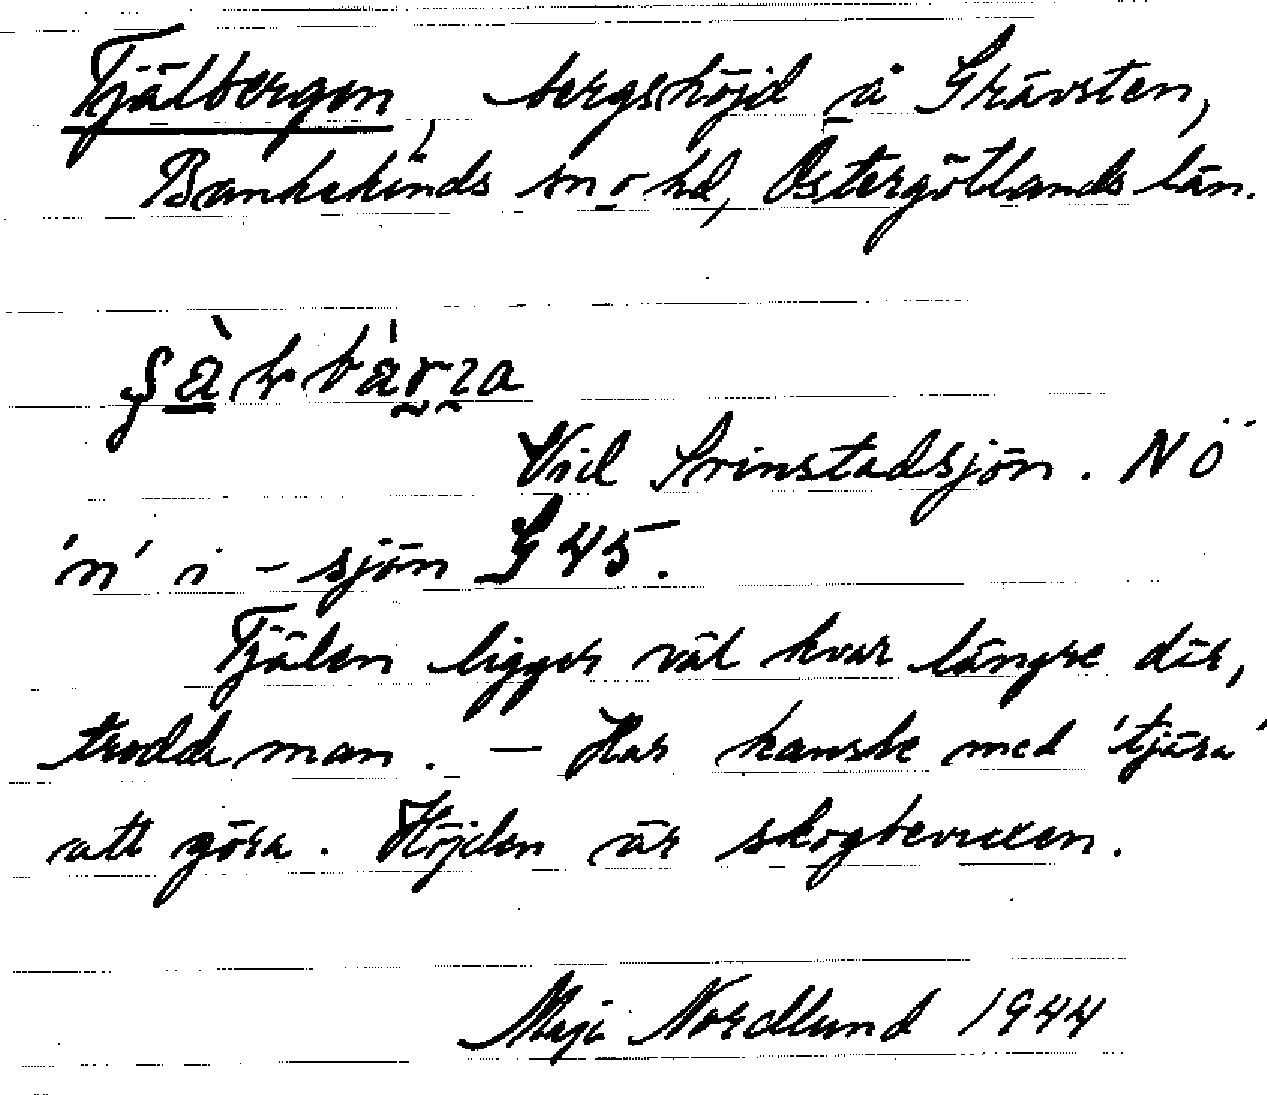 Tjälbergen, bergshöjd å Grävsten,
Bankekinds sn o hd, Östergötlands län.
Vid Svinstadsjön. NÖ
'n' i -sjön G 45.
Tjälen ligger väl kvar längre där,
trodde man. — Har kanske med 'tjära'
att göra. Höjden är skogbevuxen.
Maji Nordlund 1944